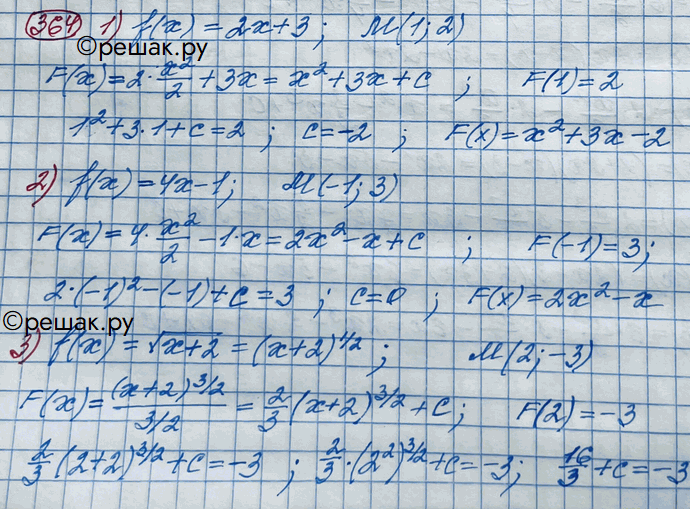 364 1) f(x) = 2x+3; M(1; 2)
©решак.ру
F(x)=2·x²/2+3x = x²+3x+c ; F(1)=2
1²+3·1+c=2 ; c=-2 ; F(x)=x²+3x-2
2) f(x)=4x-1; M(-1; 3)
F(x)=4·x²/2-1·x=2x²-x+c ; F(-1)=3;
2·(-1)²-(-1)+c=3 ; c=0 ; F(x)=2x²-x
©решак.ру
3) f(x)=√x+2=(x+2)^1/2 ; M(2; -3)
F(x)=(x+2)^3/2/3/2=2/3(x+2)^3/2+C; F(2)=-3
2/3(2+2)^3/2+c=-3 ; 2/3·(2²)^3/2+c=-3; 16/3+c=-3